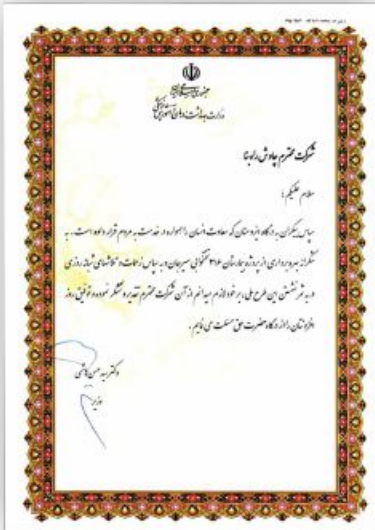 جمهوری اسلامی ایران
وزارت بهداشت، درمان و آموزش پزشکی
شرکت محترم چاوش راه بنا
سلام علیکم؛
سپاس بیکران به درگاه ایزد منان که سعادت انسان را همواره در خدمت به مردم قرار داده است. به
شکرانه بهره برداری از پروژه بیمارستان ۳۱۶ تختخوابی سیرجان و به پاس زحمات و تلاشهای شبانه روزی
در به ثمر نشستن این طرح ملی، بر خود لازم میدانم از آن شرکت محترم تقدیر و تشکر نموده و توفیق روز
افزونتان را از درگاه حضرت حق مسئلت می نمایم.
دکتر سید حسن هاشمی
وزیر